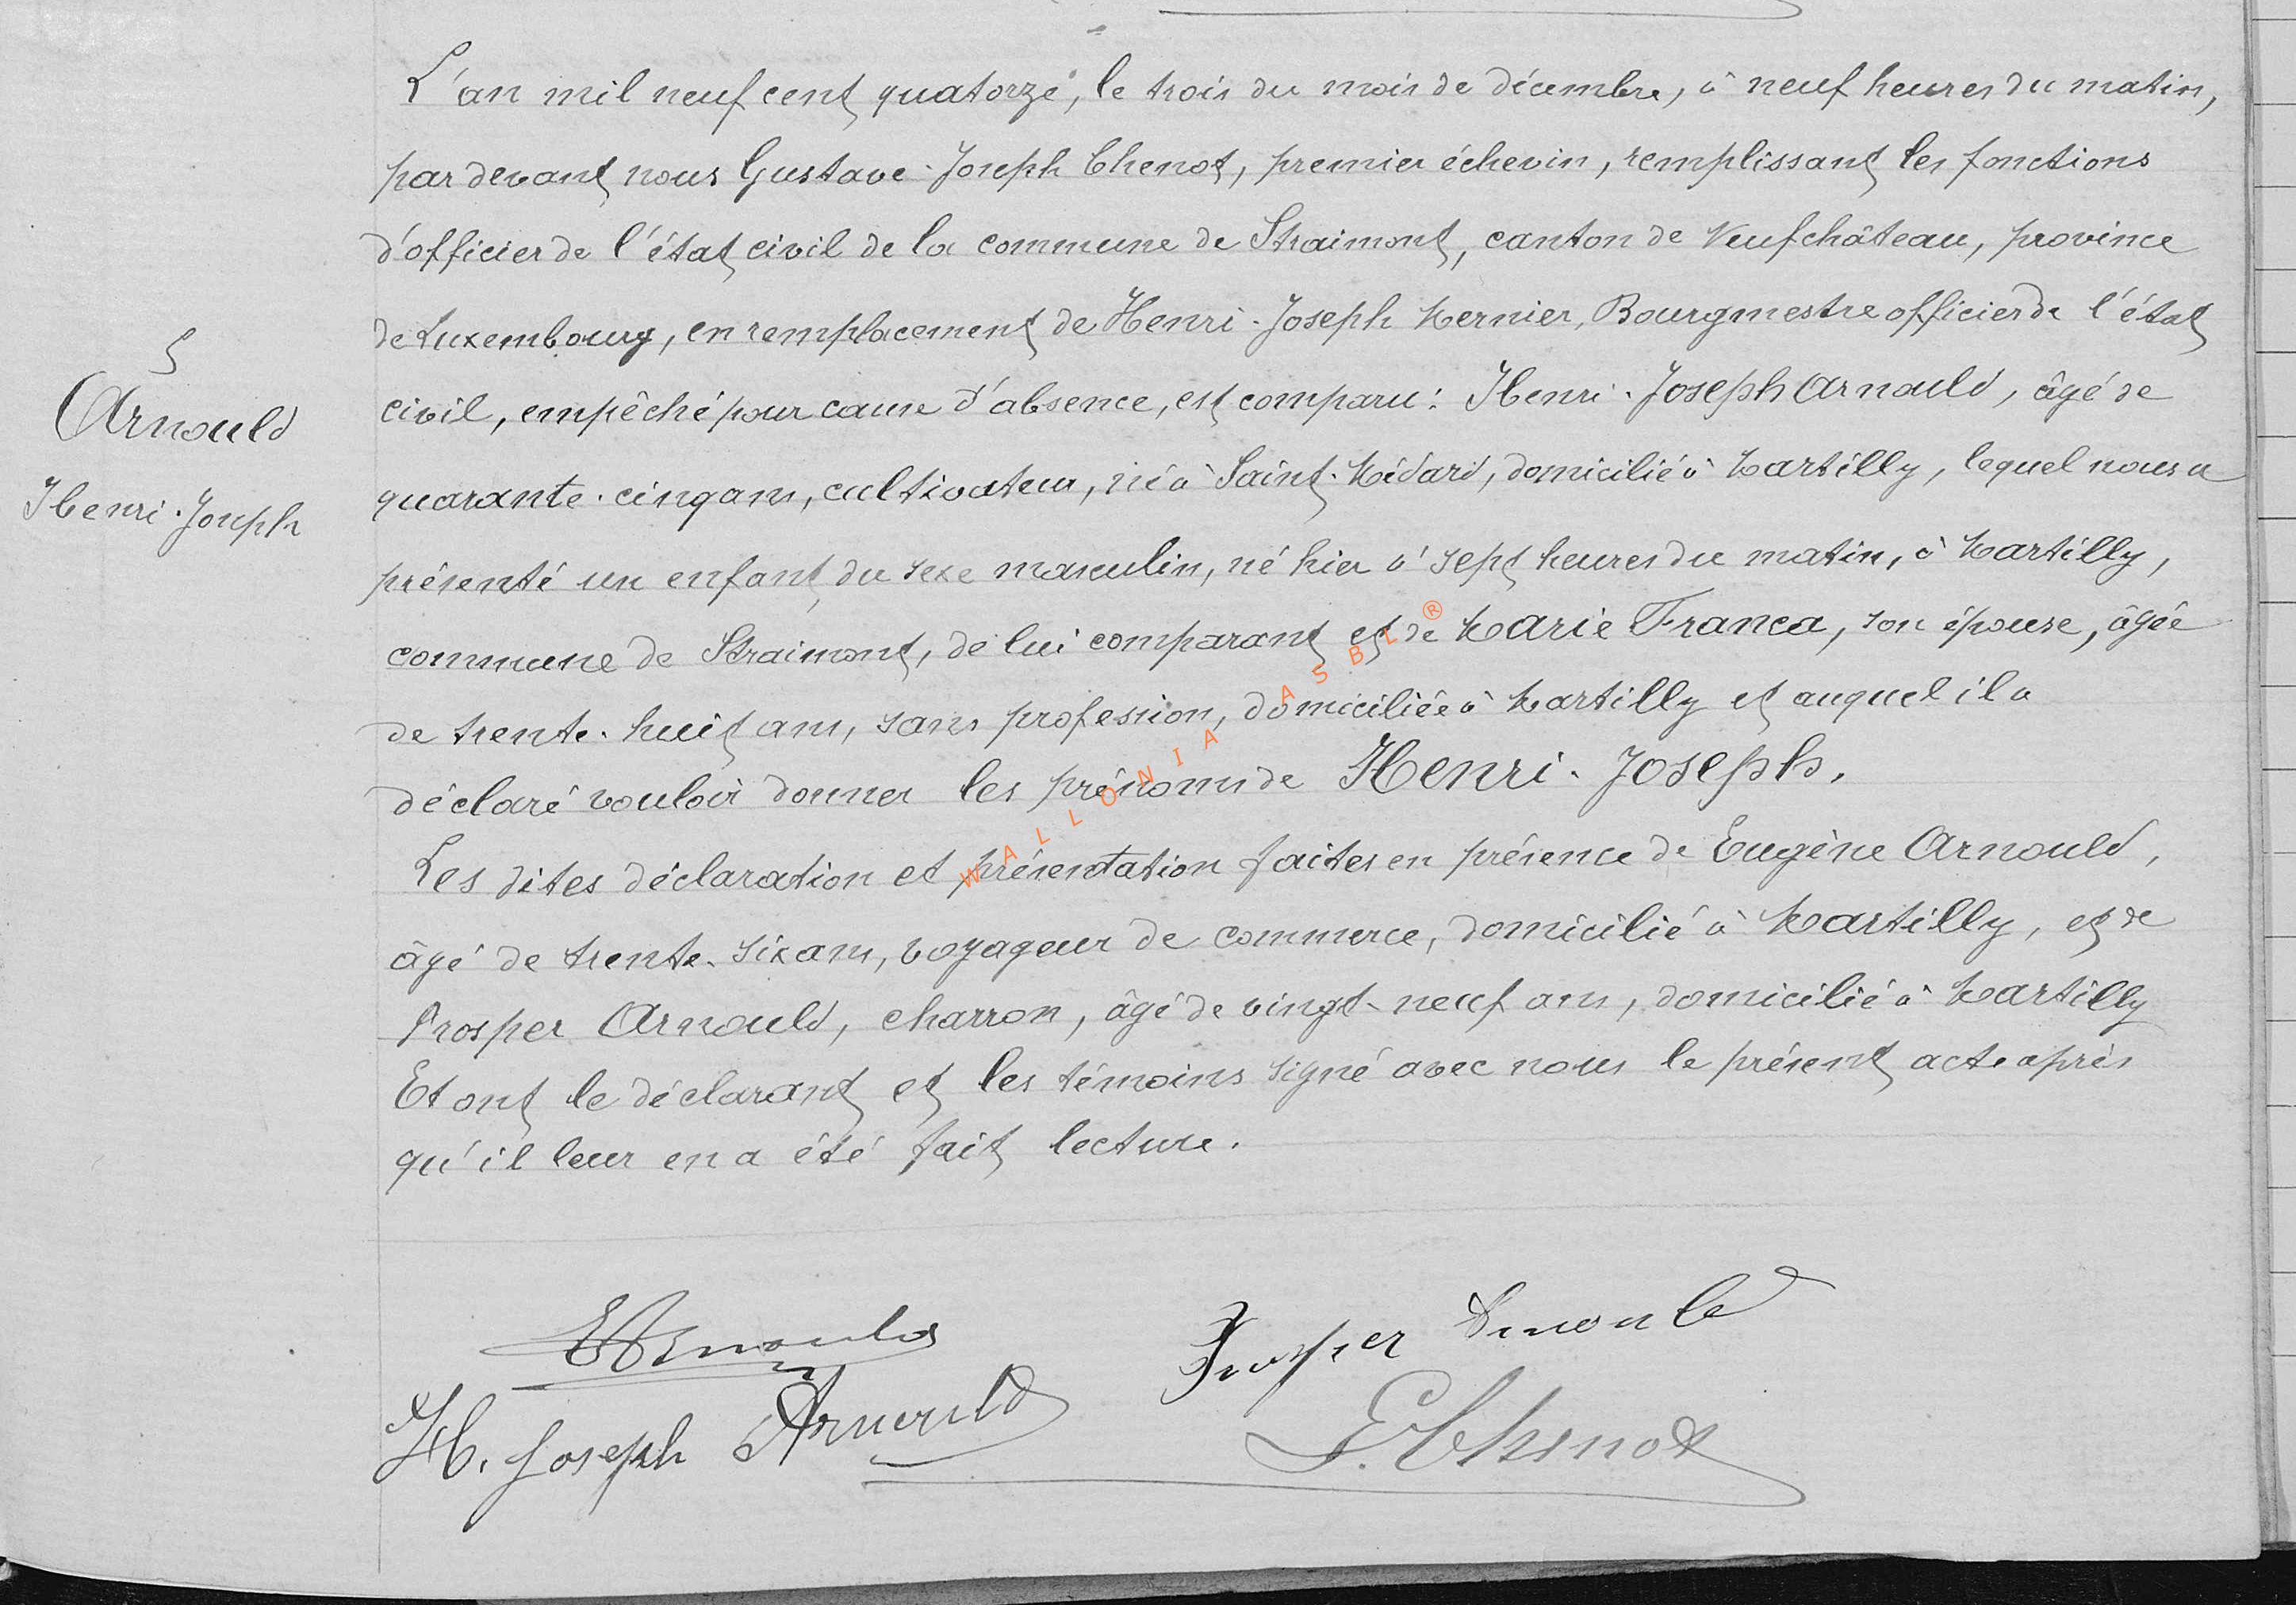 L'an mil neuf cent quatorze, le trois du mois de décembre, à neuf heures du matin,
par devant nous Gustave-Joseph Chenot, premier échevin, remplissant les fonctions
d'officier de l'état civil de la commune de Straimont, canton de Neufchâteau, province
de Luxembourg, en remplacement de Henri-Joseph Mernier, Bourgmestre officier de l'état
civil, empêché pour cause d'absence, est comparu: Henri-Joseph Arnould, âgé de
quarante-cinq ans, cultivateur, né à Saint-Médard, domicilié à Martilly, lequel nous a
présenté un enfant du sexe masculin, né hier à sept heures du matin, à Martilly,
commune de Straimont, de lui comparant et de Marie Franca, son épouse, âgée
de trente-huit ans, sans profession, domiciliée à Martilly et auquel il a
déclaré vouloir donner les prénoms de Henri-Joseph.
Les dites déclaration et présentation faites en présence de Eugène Arnould,
âgé de trente-six ans, voyageur de commerce, domicilié à Martilly, et de
Prosper Arnould, charron, âgé de vingt-neuf ans, domicilié à Martilly
Et ont le déclarant et les témoins signé avec nous le présent acte après
qu'il leur en a été fait lecture.
5
Arnould
Henri-Joseph
EArnould
Prosper Arnould
H. Joseph Arnould
G. Chenot
WALLONIA ASBL ®